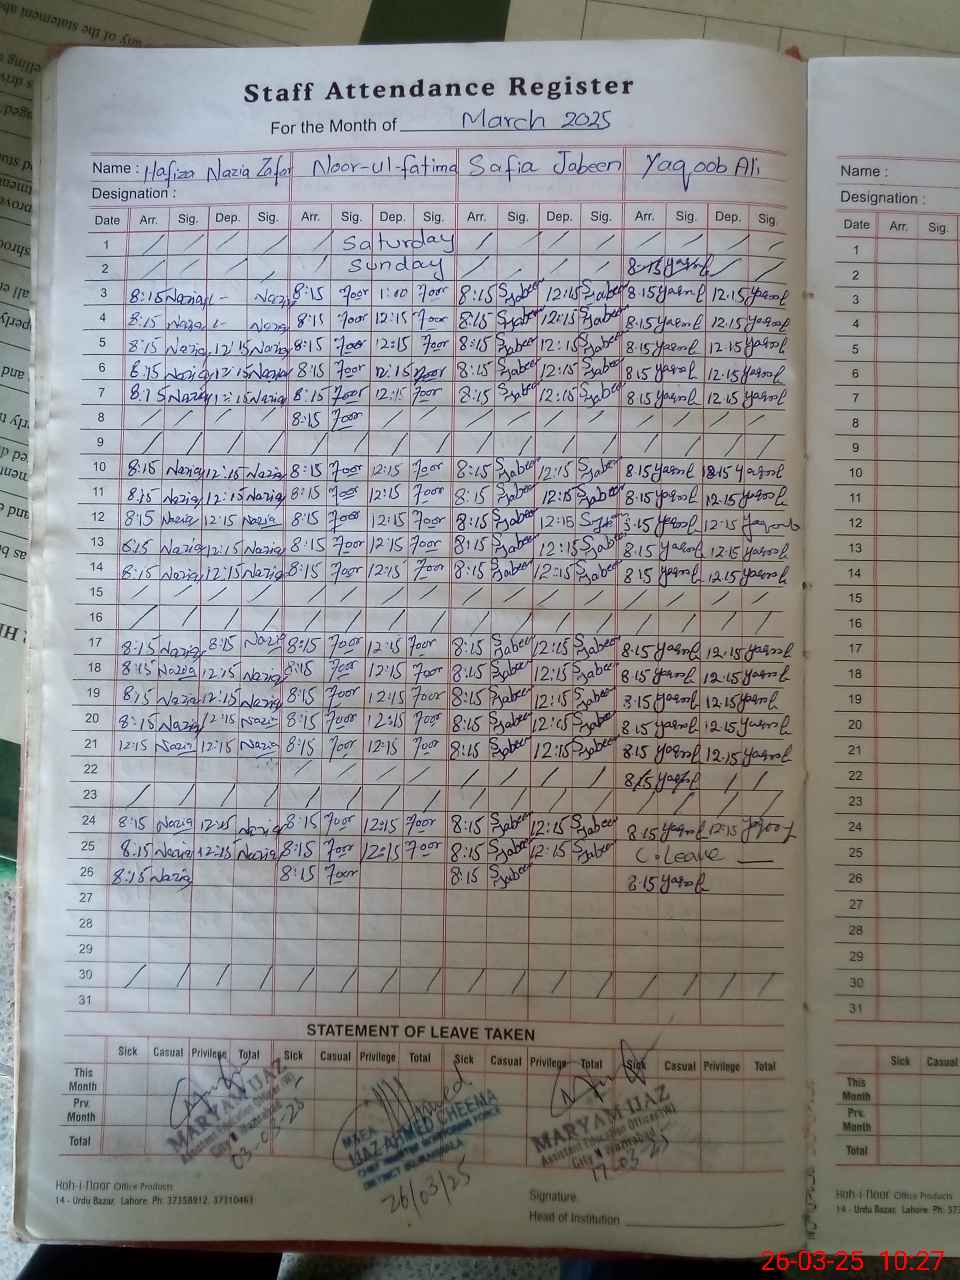 Staff Attendance Register
For the Month of March 2025
Name : Hafiza Nazia Zafar Noor-ul-fatima Safia Jabeen Yaqoob Ali
Designation :
Date Arr. Sig. Dep. Sig. Arr. Sig. Dep. Sig. Arr. Sig. Dep. Sig. Arr. Sig. Dep. Sig.
1 / / / / / Saturday / / / / / / / /
2 / / / / / Sunday / / / / 8:15 / /
3 8:15 Nazia 1- Nazia 8:15 Noor 1:00 Noor 8:15 S Jabeen 12:15 S Jabeen 8.15 Yaqoob 12.15 Yaqoob
4 8:15 Nazia 1- Nazia 8:15 Noor 12:15 Noor 8:15 S Jabeen 12:15 S Jabeen 8.15 Yaqoob 12.15 Yaqoob
5 8:15 Nazia 12:15 Nazia 8:15 Noor 12:15 Noor 8:15 S Jabeen 12:15 S Jabeen 8.15 Yaqoob 12.15 Yaqoob
6 8:15 Nazia 12:15 Nazia 8:15 Noor 12:15 Noor 8:15 S Jabeen 12:15 S Jabeen 8.15 Yaqoob 12.15 Yaqoob
7 8:15 Nazia 12:15 Nazia 8:15 Noor 12:15 Noor 8:15 S Jabeen 12:15 S Jabeen 8.15 Yaqoob 12.15 Yaqoob
8 / / / / 8:15 Noor / / / / / / / / / /
9 / / / / / / / / / / / / / / / /
10 8:15 Nazia 12:15 Nazia 8:15 Noor 12:15 Noor 8:15 S Jabeen 12:15 S Jabeen 8.15 Yaqoob 12.15 Yaqoob
11 8:15 Nazia 12:15 Nazia 8:15 Noor 12:15 Noor 8:15 S Jabeen 12:15 S Jabeen 8.15 Yaqoob 12.15 Yaqoob
12 8:15 Nazia 12:15 Nazia 8:15 Noor 12:15 Noor 8:15 S Jabeen 12:15 8.15 Yaqoob 12:15 Yaqoob
13 8:15 Nazia 12:15 Nazia 8:15 Noor 12:15 Noor 8:15 S Jabeen 12:15 S Jabeen 8.15 Yaqoob 12.15 Yaqoob
14 8:15 Nazia 12:15 Nazia 8:15 Noor 12:15 Noor 8:15 S Jabeen 12:15 S Jabeen 8.15 Yaqoob 12.15 Yaqoob
15 / / / / / / / / / / / / / / / /
16 / / / / / / / / / / / / / / / /
17 8:15 Nazia 8:15 Nazia 8:15 Noor 12:15 Noor 8:15 S Jabeen 12:15 S Jabeen 8.15 Yaqoob 12.15 Yaqoob
18 8:15 Nazia 12:15 Nazia 8:15 Noor 12:15 Noor 8:15 S Jabeen 12:15 S Jabeen 8.15 Yaqoob 12.15 Yaqoob
19 8:15 Nazia 12:15 Nazia 8:15 Noor 12:15 Noor 8:15 S Jabeen 12:15 S Jabeen 8.15 Yaqoob 12.15 Yaqoob
20 8:15 Nazia 12:15 Nazia 8:15 Noor 12:15 Noor 8:15 S Jabeen 12:15 S Jabeen 8.15 Yaqoob 12.15 Yaqoob
21 12:15 Nazia 12:15 Nazia 8:15 Noor 12:15 Noor 8:15 S Jabeen 12:15 S Jabeen 8.15 Yaqoob 12.15 Yaqoob
22 / / / / / / / / 8.15 Yaqoob / /
23 / / / / / / / / / / / / / / / /
24 8:15 Nazia 12:15 Nazia 8:15 Noor 12:15 Noor 8:15 S Jabeen 12:15 S Jabeen 8.15 Yaqoob 12:15
25 8:15 Nazia 12:15 Nazia 8:15 Noor 12:15 Noor 8:15 S Jabeen 12:15 S Jabeen C.leave —
26 8:15 Nazia 8:15 Noor 8:15 S Jabeen 8.15 Yaqoob
27
28
29
30 / / / / / / / / / / / / / / / /
31
STATEMENT OF LEAVE TAKEN
Sick Casual Privilege Total Sick Casual Privilege Total Sick Casual Privilege Total Sick Casual Privilege Total
This Month
Prv. Month
Total
MARYAM IJAZ
Assistant Education Officer (W)
City
03-03-25
MAEA
IJAZ AHMED CHEEMA
26/03/25
MARYAM IJAZ
Assistant Education Officer (W)
City
17-03-25
Koh-i-Noor Office Products
14 - Urdu Bazar, Lahore. Ph: 37358912, 37310461
Signature
Head of Institution
Name :
Designation :
Date Arr. Sig.
1
2
3
4
5
6
7
8
9
10
11
12
13
14
15
16
17
18
19
20
21
22
23
24
25
26
27
28
29
30
31
Sick Casual
This Month
Prv. Month
Total
Koh-i-Noor Office Products
14 - Urdu Bazar, Lahore. Ph:
26-03-25 10:27